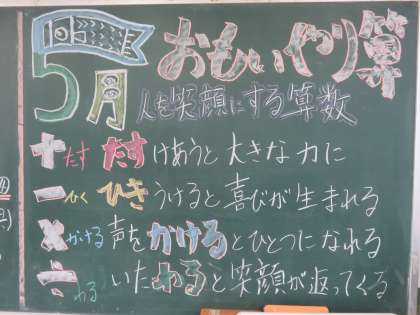 5月 おもいやり算
人を笑顔にする算数
+ たす たすけあうと大きな力に
− ひく ひきうけると喜びが生まれる
× かける 声をかけるとひとつになれる
÷ わる いたわると笑顔が返ってくる